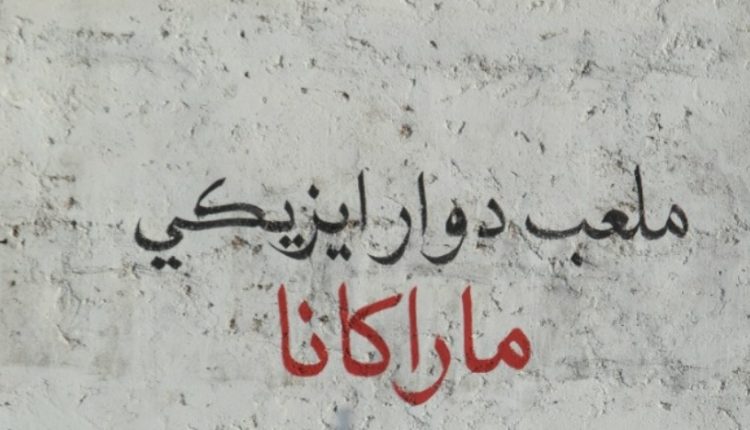 ملعب دوار ايزيكي
ماراكانا